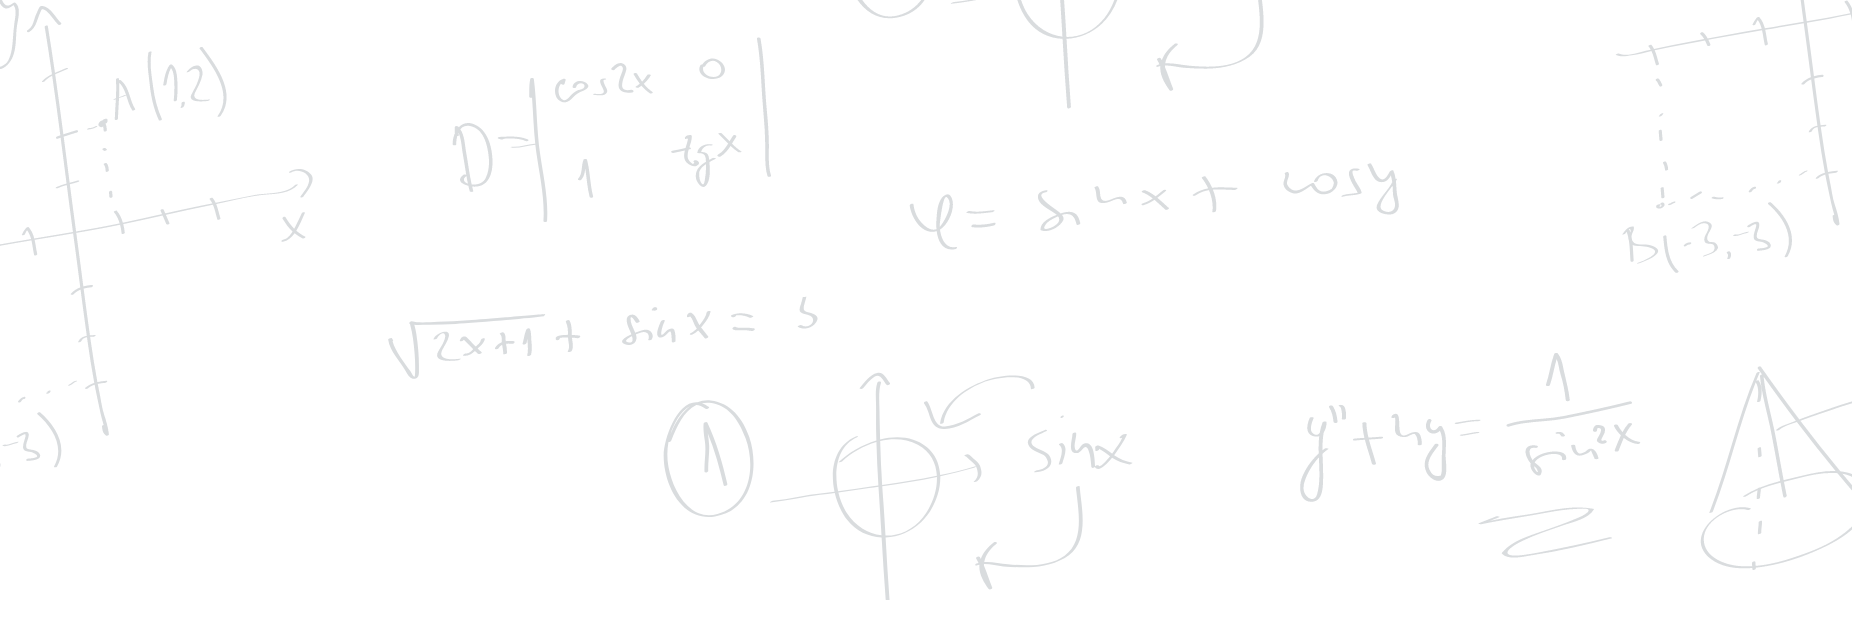 y
A(1,2)
x
D = | cos2x 0 |
| 1 tgx |
φ = sinx + cosy
B(-3,-3)
√2x+1 + sinx = 5
-3)
1
sinx
y" + 4y = 1
sin²x